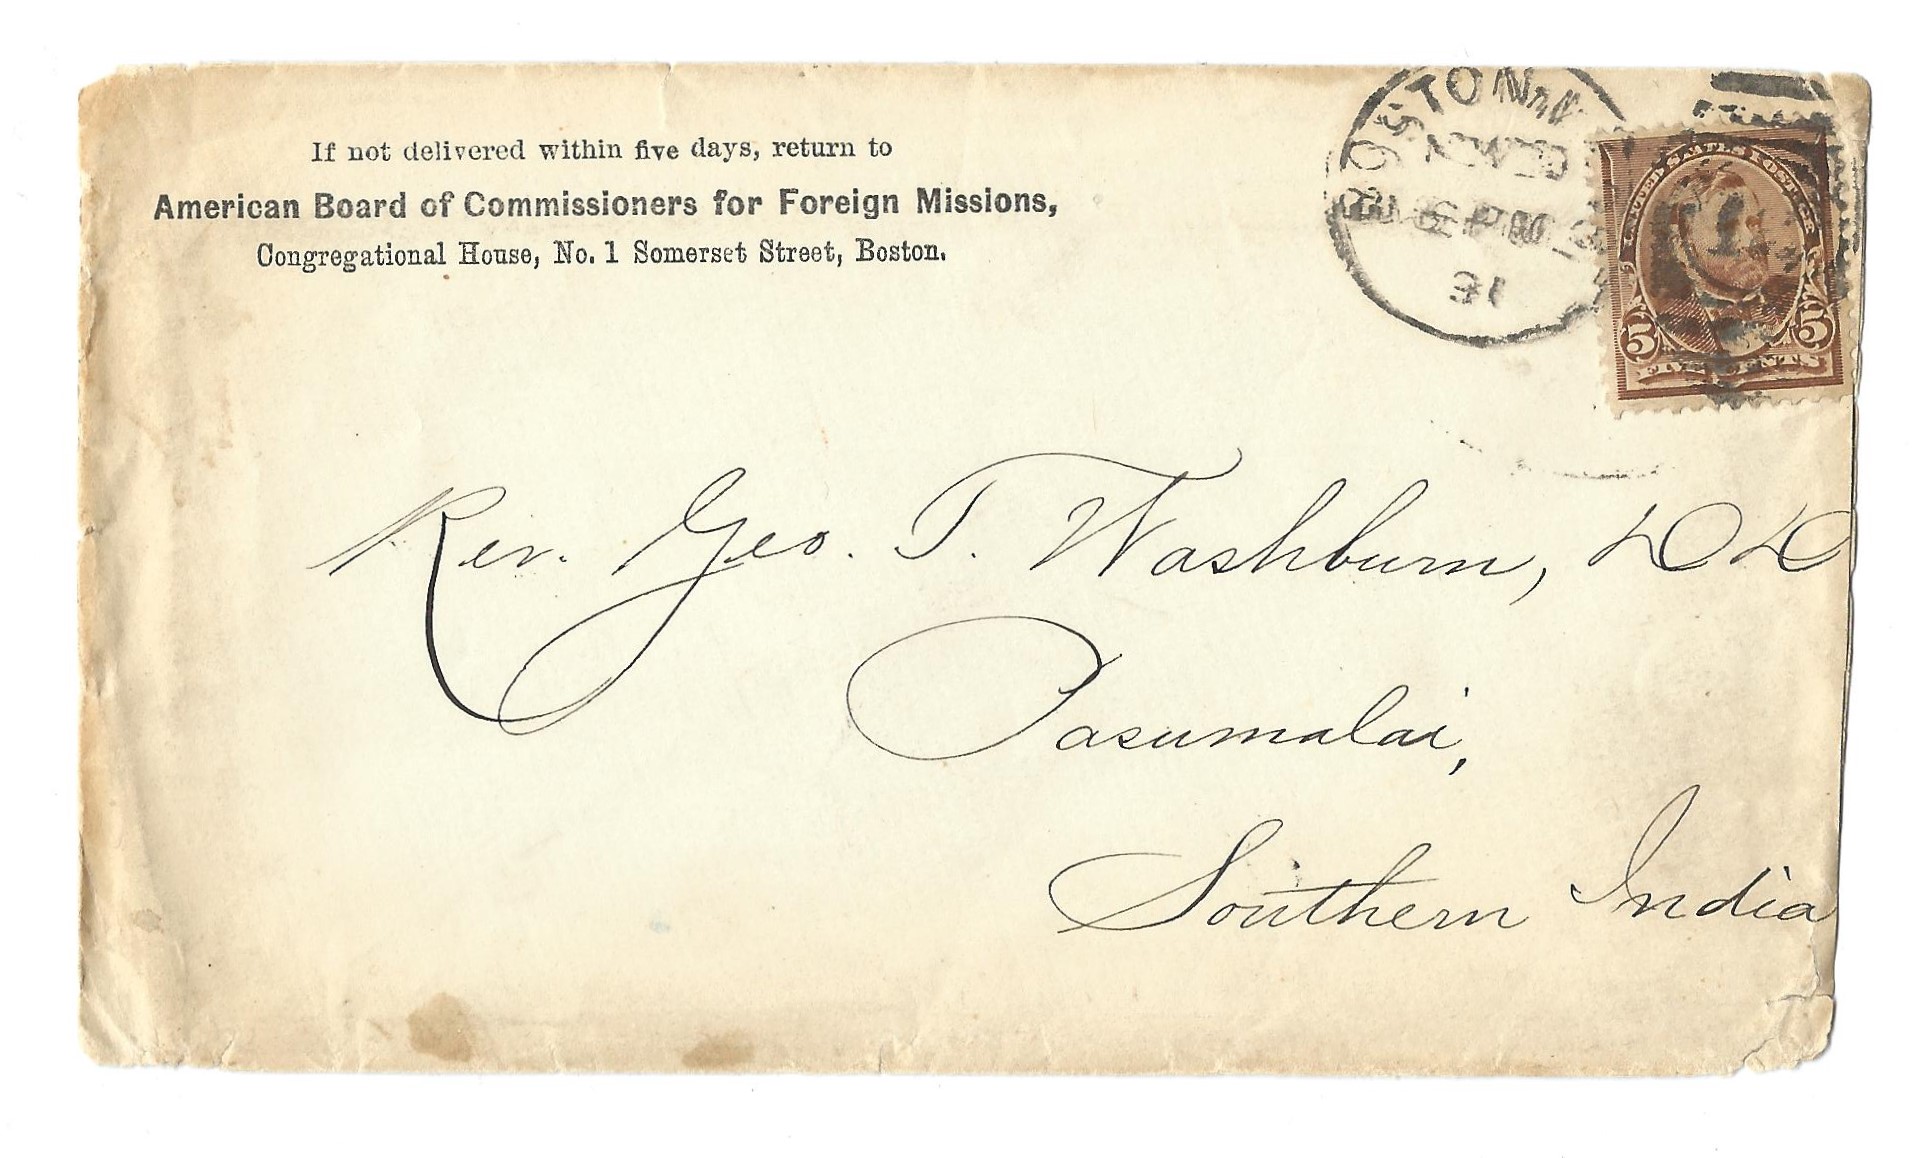 If not delivered within five days, return to
American Board of Commissioners for Foreign Missions,
Congregational House, No. 1 Somerset Street, Boston.
BOSTON
91
UNITED STATES POSTAGE
5 5
FIVE CENTS
Rev. Geo. T. Washburn, DD
Pasumalai,
Southern India